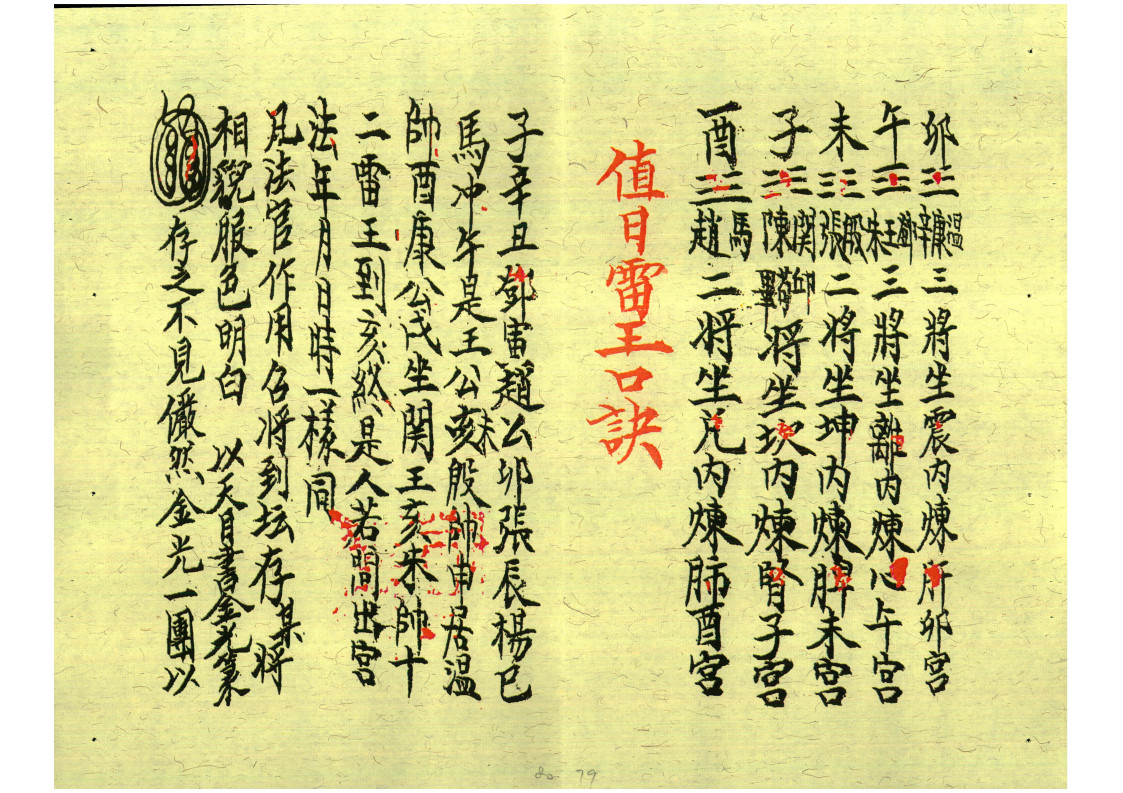 卯三溫康辛三將坐震內煉肝卯宮
午三鄧王朱三將坐離內煉心午宮
未三三殷張二將坐坤內煉脾未宮
子三三関陳邱將坐坎內煉腎子宮
酉三三馬趙二將坐兌內煉肺酉宮
值日雷王口訣
子辛丑鄧寅趙公卯張辰楊巳
馬冲午是王公亥未殷帥申居溫
帥酉康公戌坐関王亥朱帥十
二雷王到亥然是人若問出宮
法年月日時一樣同
凡法官作用召將到坛存某將
相貌服色明白 以天目書金光篆
存之不見儼然金光一團以
80 79